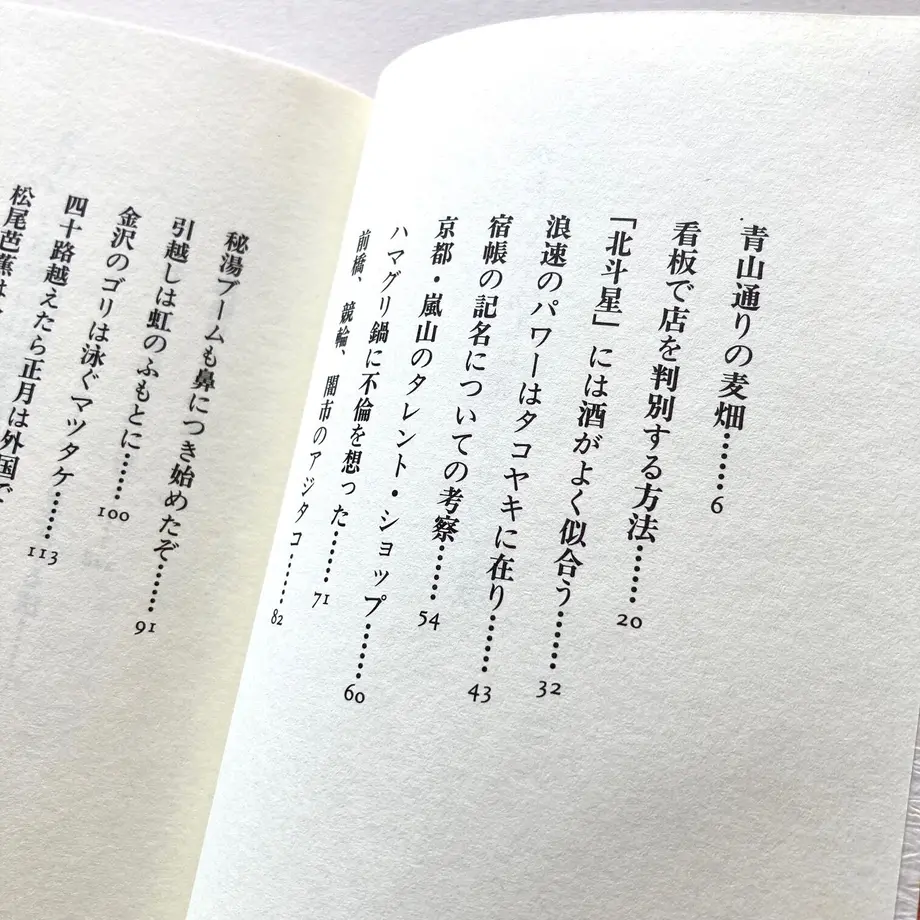 青山通りの麦畑……6
看板で店を判別する方法……20
「北斗星」には酒がよく似合う……32
浪速のパワーはタコヤキに在り……43
宿帳の記名についての考察……54
京都・嵐山のタレント・ショップ……60
ハマグリ鍋に不倫を想った……71
前橋、競輪、闇市のアジタコ……82
秘湯ブームも鼻につき始めたぞ……91
引越しは虹のふもとに……100
金沢のゴリは泳ぐマツタケ……113
四十路越えたら正月は外国で
松尾芭蕉は